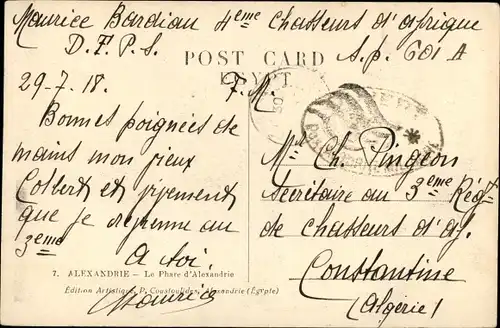 Maurice Bardian 4eme Chasseurs d'afrique
D.F.P.S. S.p. 601 A
POST CARD
EGYPT
29-7.18. F.M.
Bonnes poignées de
mains mon vieux
Colbert et vivement
que je revienne au
3eme
A toi.
Maurice
Mr Ch. Pingeon
Secrétaire au 3eme Régt
de chasseurs d'af.
Constantine
(Algérie)
7. ALEXANDRIE — Le Phare d'Alexandrie
Édition Artistique, P. Coustoulides, Alexandrie (Égypte)